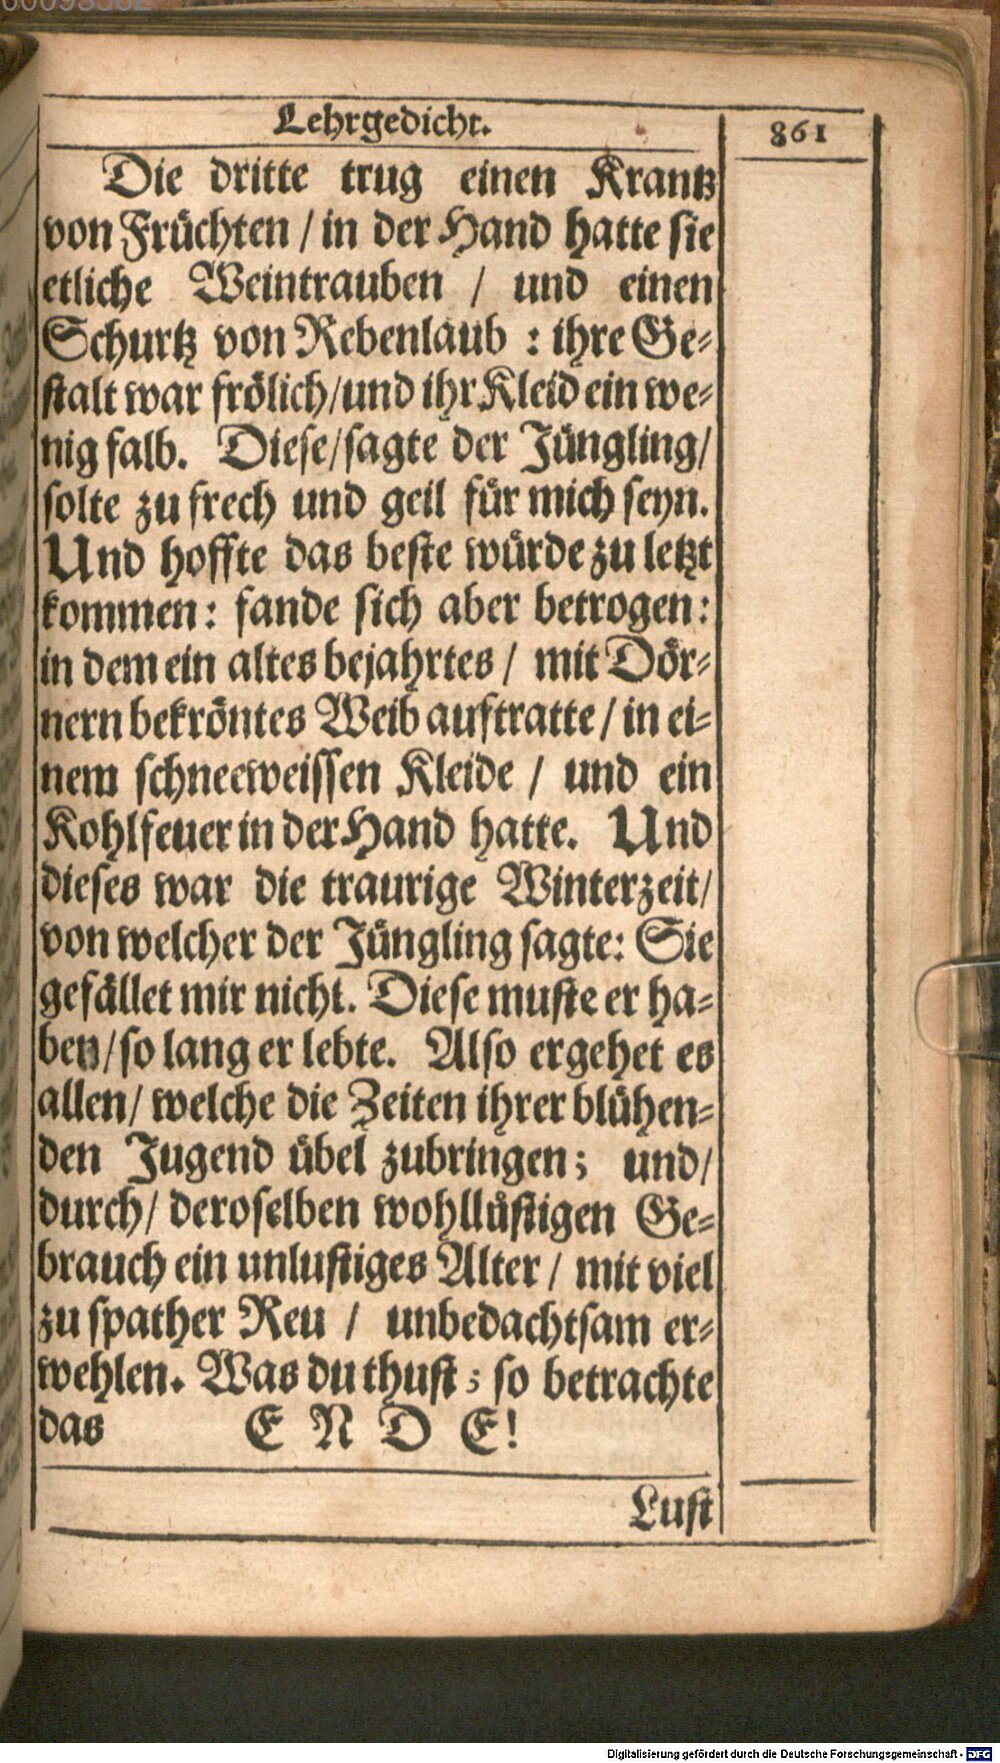 Lehrgedicht.
861
Die dritte trug einen Krantz
von Früchten / in der Hand hatte sie
etliche Weintrauben / und einen
Schurtz von Rebenlaub : ihre Ge-
stalt war frölich/und ihr Kleid ein we-
nig falb. Diese/sagte der Jüngling/
solte zu frech und geil für mich seyn.
Und hoffte das beste würde zu letzt
kommen: fande sich aber betrogen:
in dem ein altes bejahrtes / mit Dör-
nern bekröntes Weib auftratte / in ei-
nem schneeweissen Kleide / und ein
Kohlfeuer in der Hand hatte. Und
dieses war die traurige Winterzeit/
von welcher der Jüngling sagte: Sie
gefället mir nicht. Diese muste er ha-
ben/so lang er lebte. Also ergehet es
allen/ welche die Zeiten ihrer blühen-
den Jugend übel zubringen; und/
durch/ deroselben wohllüstigen Ge-
brauch ein unlustiges Alter / mit viel
zu spather Reu / unbedachtsam er-
wehlen. Was du thust ; so betrachte
das E N D E!
Lust
Digitalisierung gefördert durch die Deutsche Forschungsgemeinschaft - DFG